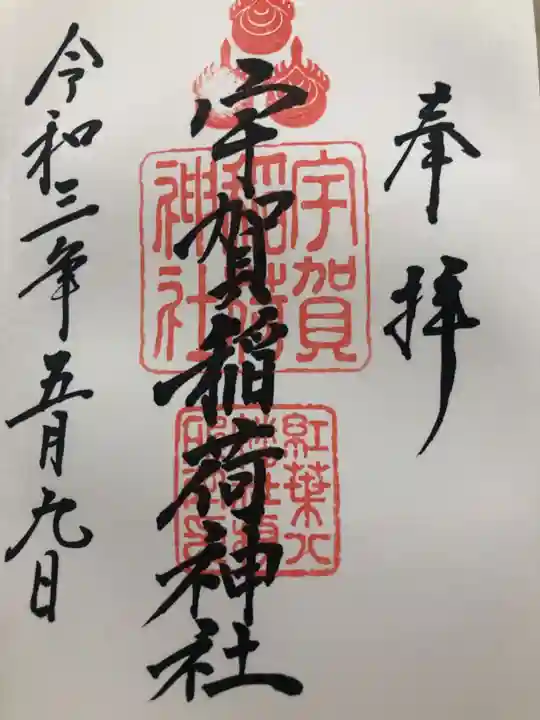 奉拝
宇賀稲荷神社
宇賀
稲荷
神社
紅葉八
令和三年五月九日